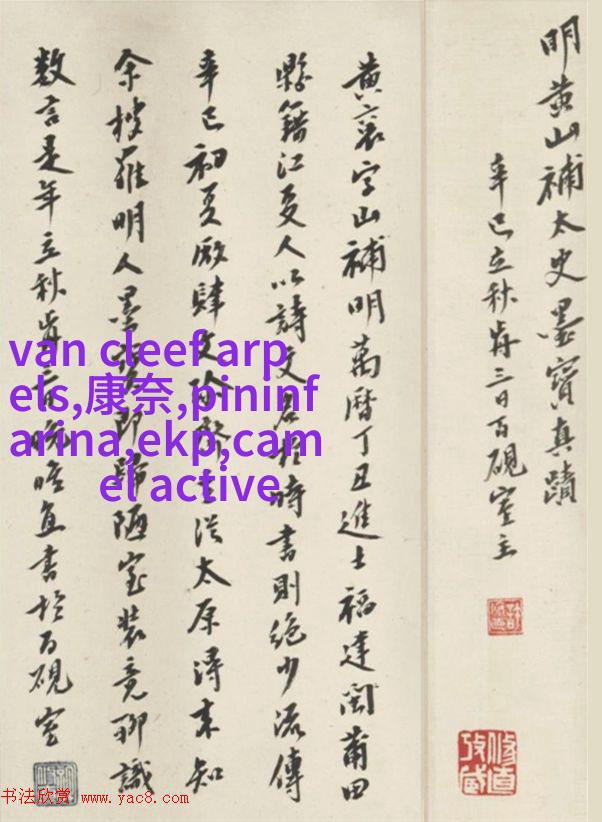 明黄山補太史墨寶真蹟
辛巳立秋前三日百硯室主
黄字山補明萬曆丁丑進士福建閩莆田
縣籍江夏人以詩文名於時書則絶少流傳
辛巳初夏廠肆文主從太原得来知
余搜羅明人墨即歸陋室装竟聊識
數言是年立秋前書於百硯室
van cleef arp
els,康奈,pininf
arina,ekp,cam
el active
书法欣赏 www.yac8.com